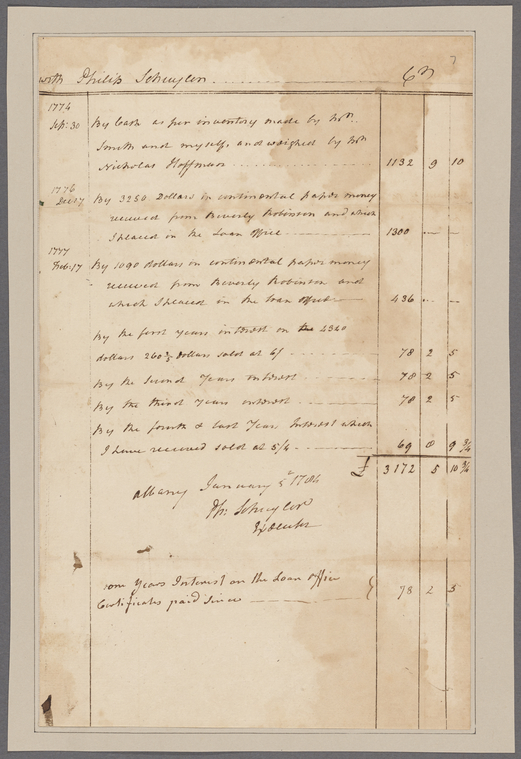 7
with Philip Schuyler Cr
1774
Sep: 30 By Cash as per inventory made by Wm
Smith and myself and weighed by Mr
Nicholas Hoffman 1132 9 10
1776
Dec 17 By 3250 Dollars in continental paper money
received from Beverly Robinson and which
I placed in the Loan office 1300 — —
1777
Feb: 17 By 1090 dollars in continental paper money
received from Beverly Robinson and
which I placed in the loan office 436 — —
By the first years interest on the 4340
dollars 260 2/5 Dollars sold at 6/ 78 2 5
By the Second Years interest 78 2 5
By the third Years interest 78 2 5
By the fourth & last Years Interest which
I have received sold at 5/4 69 8 9 3/4
£ 3172 5 10 3/4
Albany January 5th 1784
Ph: Schuyler
Executor
one Years Interest on the Loan office
Certificates paid since } 78 2 5